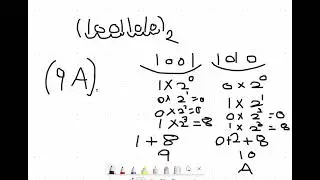 (10011010)₂
1001 1010
(9A).
1×2⁰ 0×2⁰
0×2¹=0 1×2¹
0×2²=0 0×2²=0
1×2³=8 1×2³=8
1+8 0+2+8
9 10
A